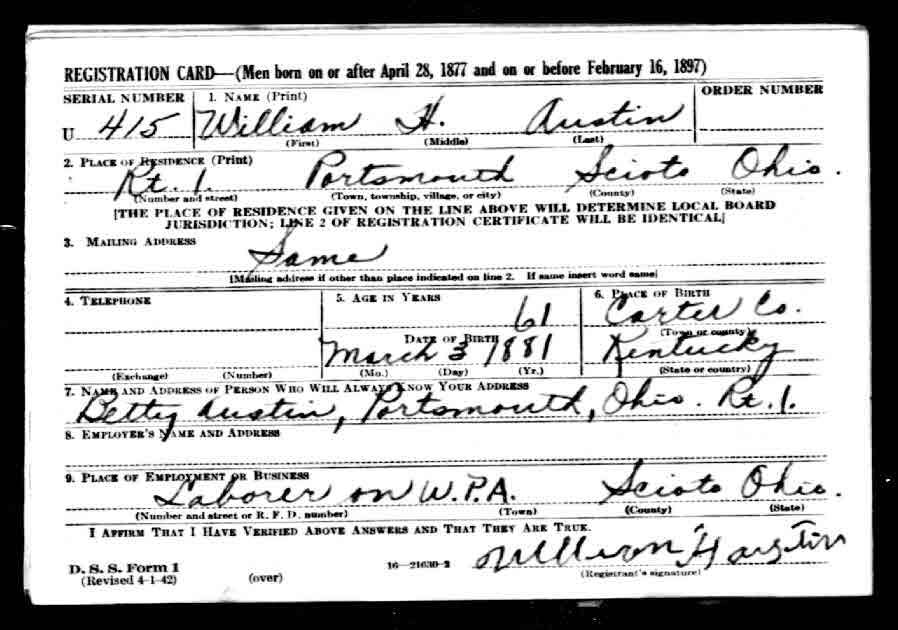 REGISTRATION CARD—(Men born on or after April 28, 1877 and on or before February 16, 1897)
SERIAL NUMBER 1. NAME (Print) ORDER NUMBER
U 415 William H. Austin
(First) (Middle) (Last)
2. PLACE OF RESIDENCE (Print)
Rt. 1. Portsmouth Scioto Ohio.
(Number and street) (Town, township, village, or city) (County) (State)
[THE PLACE OF RESIDENCE GIVEN ON THE LINE ABOVE WILL DETERMINE LOCAL BOARD
JURISDICTION; LINE 2 OF REGISTRATION CERTIFICATE WILL BE IDENTICAL]
3. MAILING ADDRESS
Same
[Mailing address if other than place indicated on line 2. If same insert word same]
4. TELEPHONE 5. AGE IN YEARS 6. PLACE OF BIRTH
61 Carter Co.
DATE OF BIRTH (Town or county)
March 3 1881 Kentucky
(Exchange) (Number) (Mo.) (Day) (Yr.) (State or country)
7. NAME AND ADDRESS OF PERSON WHO WILL ALWAYS KNOW YOUR ADDRESS
Betty Austin, Portsmouth, Ohio. Rt. 1.
8. EMPLOYER'S NAME AND ADDRESS
9. PLACE OF EMPLOYMENT OR BUSINESS
Laborer on W.P.A. Scioto Ohio.
(Number and street or R. F. D. number) (Town) (County) (State)
I AFFIRM THAT I HAVE VERIFIED ABOVE ANSWERS AND THAT THEY ARE TRUE.
D. S. S. Form 1 16—21630-2
(Revised 4-1-42) (over) (Registrant's signature)